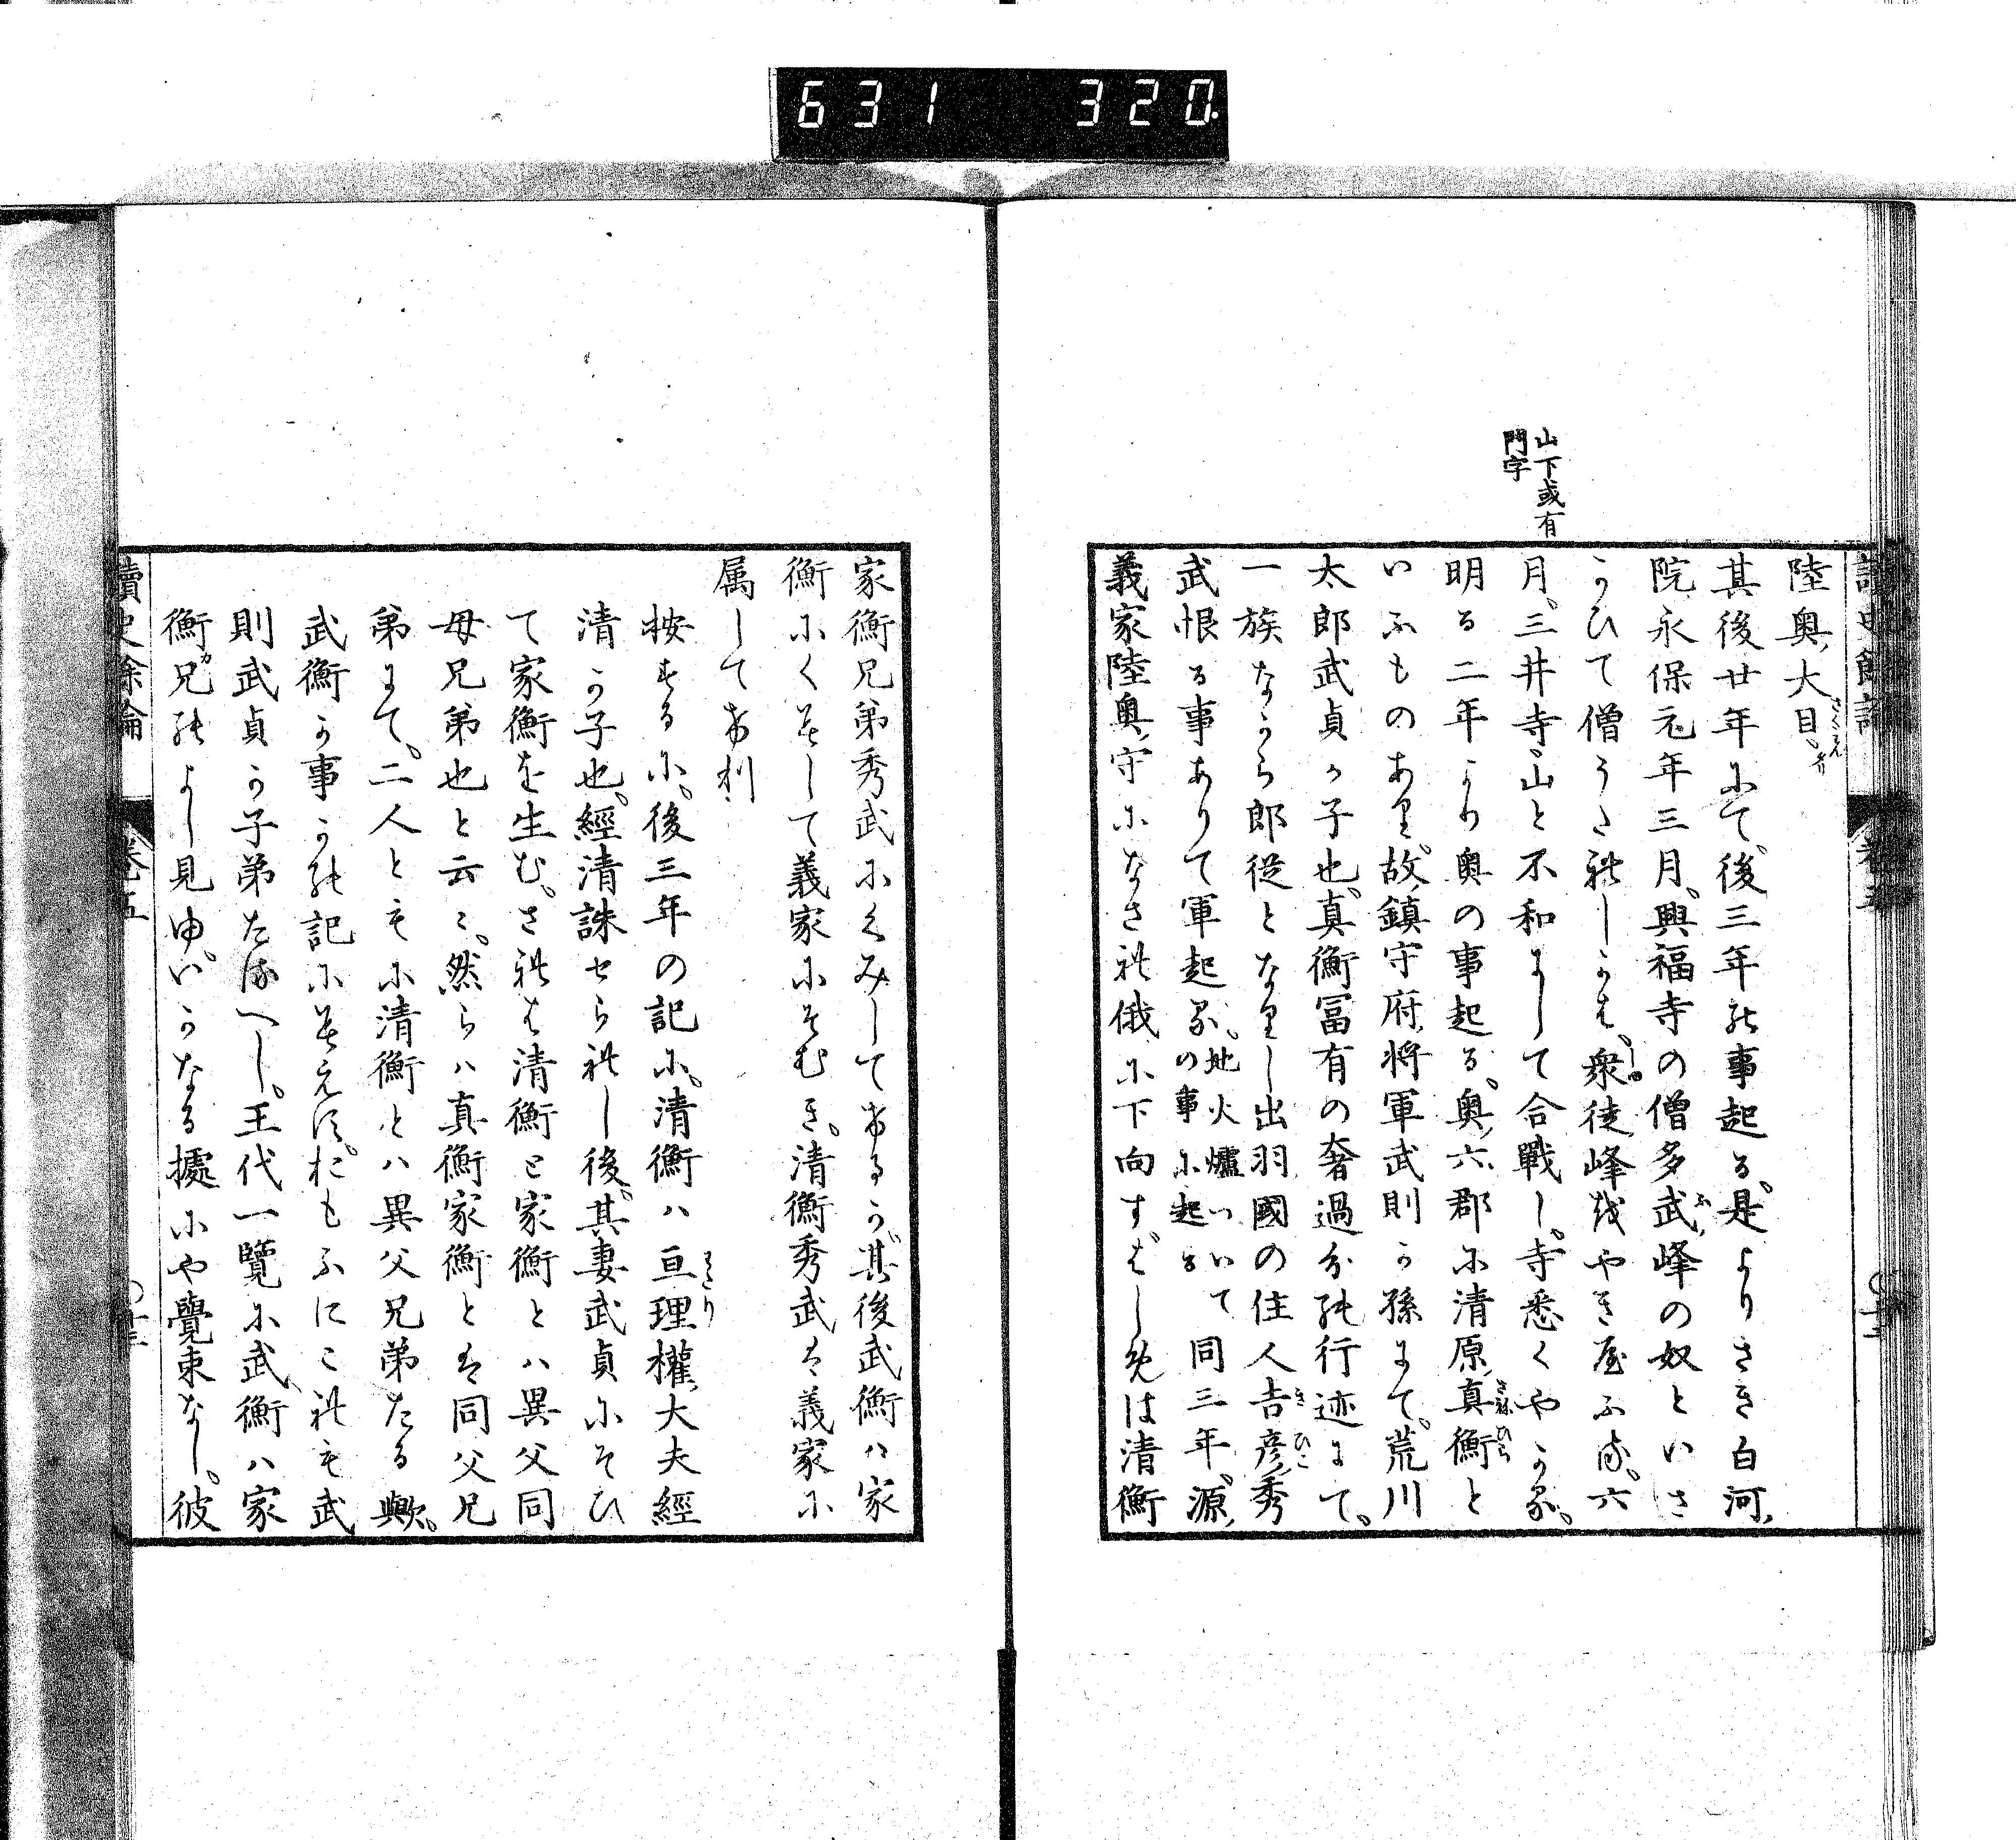 631 320.
山下或有
門字
陸奥ノ大目。
其後廿年にて。後三年の事起る。是よりさき白河ノ
院永保元年三月。興福寺の僧多武ノ峰の奴といさ
かひて僧うたれしかは。衆徒峰をやき屋ふる。六
月。三井寺山と不和にして合戰し。寺悉くやかる。
明る二年より奥の事起る。奥ノ六郡に清原ノ真衡と
いふものあり。故ノ鎮守府ノ将軍武則か孫にて。荒川
太郎武貞か子也。真衡冨有の奢過分の行迹にて。
一族なから郎從となりし出羽國の住人吉彦ノ秀
武恨る事ありて軍起る。地火爐ついて
の事に起る
同三年。源ノ
義家陸奥ノ守になされ俄に下向すはしめは清衡
家衡兄弟秀武にくみしてけるか。其後武衡は家
衡にくみして義家にそむき。清衡秀武は義家に
属してけり
按するに。後三年の記に。清衡ハ亘理權ノ大夫經
清か子也。經清誅せられし後。其妻武貞にそひ
て家衡を生む。されは清衡と家衡とハ異父同
母兄弟也と云々。然らハ真衡家衡とは同父兄
弟にて。二人ともに清衡とハ異父兄弟たる歟。
武衡か事かの記に見えす。おもふにこれも武
則武貞か子弟たるへし。王代一覽に武衡ハ家
衡カ兄のよし見ゆ。いかなる據にや覺束なし。彼
讀史餘論 卷五